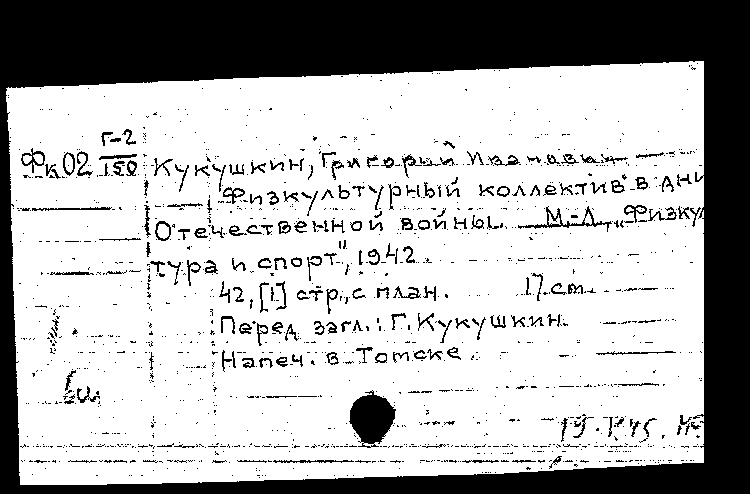 Г-2
Фк02 150
Кукушкин, Григорий Иванович
Физкультурный коллектив в дни
Отечественной войны. М.-Л., "Физку
тура и спорт", 1942.
42, [1] стр., с план. 17 см.
Перед загл.: Г. Кукушкин.
Напеч. в Томске.